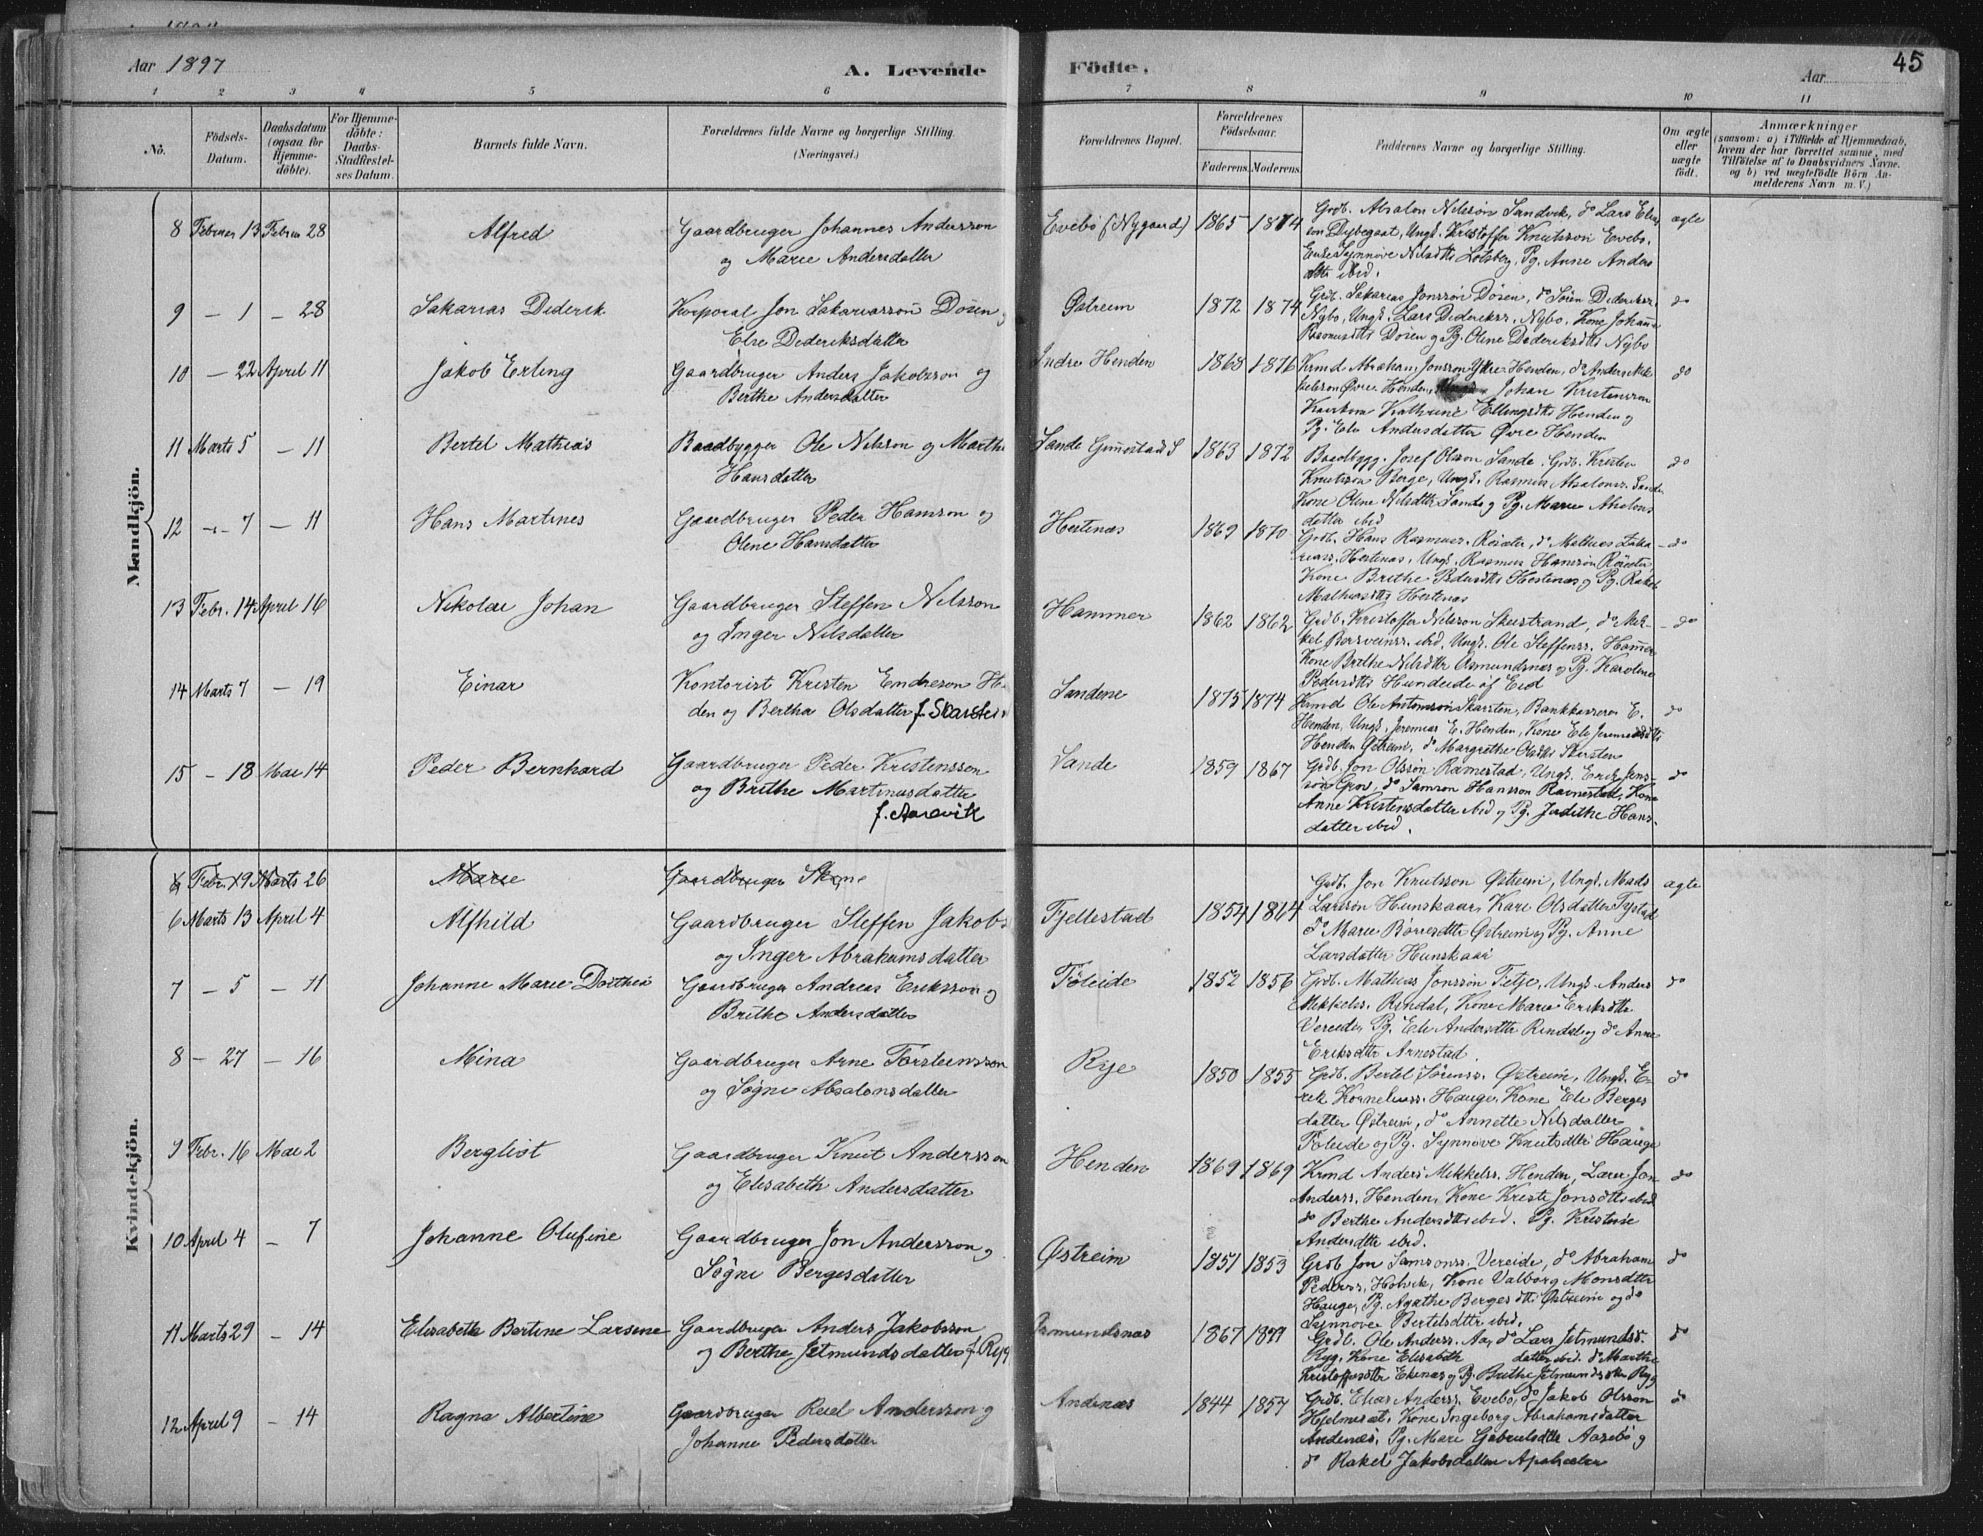 Aar 1897
A. Levende
Födte.
Aar
45
1 2 3 4 5 6 7 8 9 10 11
No.
Födsels-
Datum.
Daabsdatum
(ogsaa for
Hjemme-
döbte).
For Hjemme-
döbte:
Daabs-
Stadfæstel-
ses Datum.
Barnets fulde Navn.
Forældrenes fulde Navne og borgerlige Stilling.
(Næringsvei.)
Forældrenes Bopæl.
Forældrenes
Födselsaar.
Faderens. Moderens.
Faddernes Navne og borgerlige Stilling.
Om ægte
eller
uægte
födt.
Anmærkninger
(saasom: a) i Tilfælde af Hjemmedaab,
hvem der har forrettet samme, med
Tilföielse af to Daabsvidners Navne,
og b) ved uægtefödte Börn An-
melderens Navn m. V.)
Mandkjön.
8 Februar 13 Februar 28 Alfred Gaardbruger Johannes Andersson
og Marie Andersdatter
Evebø (Nygaard) 1865 1874
Grdb. Absalon Nilssøn Sandvik, do Lars Elias
søn Dybegaat, Ungk. Kristoffer Knutsson Evebø,
Enke Synnøve Nilsdtr Lotsberg, Pg. Anne Anders
dttr ibid.
ægte
9 – 1 – 28 Sakarias Diderik Korporal Jon Sakariassøn Døsen
Else Dideriksdatter
Østreim 1872 1874
Grdb. Sakarias Jonssøn Døsen, do Søren Dideriks.
Nybø, Ungk. Lars Dideriks. Nybø, Kone Johanne
Rasmusdtr Døsen og Pg. Oline Dideriksdtr Nybø
do
10 – 22 April 11 Jakob Erling Gaardbruger Anders Jakobsson og
Berthe Andersdatter
Indre Henden 1868 1876
Krmd Abraham Jonsson Ytre Henden, do Anders Mik
kelsson Øvre Henden, Johan Kristensson
Kathrine Ellingsdtr Henden og
Pg. Ele Andersdatter Øvre Henden
do
11 Marts 5 – 11 Bertel Mathias Baadbygger Ole Nilsson og Marthe
Hansdatter
Sande Gimmestad S 1863 1872
Baadbygg. Josef Olsson Sande, Grdb. Kristen
Knutsson Berge, Ungk. Rasmus Absalons. Sande,
Kone Oline Nilsdttr Sande og Pg. Marie Absalons
datter ibid
do
12 – 7 – 11 Hans Martines Gaardbruger Peder Hansson og
Oline Hansdatter
Hestenæs 1869 1870
Grdb. Hans Rasmuss. Røisæter, do Mathias Zaka
riass. Hestenæs, Ungk. Rasmus Hansson Røisæter,
Kone Brithe Pedersdtr Hestenæs og Pg. Rakel
Mathiasdtr Hestenæs
do
13 Febr. 14 April 16 Nikolai Johan Gaardbruger Steffen Nilsson
og Inger Nilsdatter
Hammer 1862 1862
Grdb. Kristoffer Nilsson Skeistrand, do Mik-
kel ibid, Ungk. Ole Steffenss. Hammer
Kone Brithe Nilsdttr Osmundsnæs og Pg. Karoline
Pedersdtr Hundeide af Eid
do
14 Marts 7 – 19 Einar Kontorist Kristen Endreson He
den og Bertha Olsdatter f. Skarstein
Sandene 1875 1874
Krmd Ole Antonsson Skarsten, Bankkasserer E.
Henden, Ungk. Jeremias E. Henden, Kone Ele Jeremiasdtr
Henden Østreim, do Margrethe Olsdtr Skarsten
do
15 – 18 Mai 14 Peder Bernhard Gaardbruger Peder Kristensson
og Brithe Martinusdatter
f. Aarevik
Sande 1859 1867
Grdb. Jon Olssøn Ramestad, Ungk. Erik Jens-
søn Grov, do Samson Hansson Ramestad, Kone
Anne Kristensdatter ibid og Pg. Judithe Hans-
datter ibid.
do
Kvindekjön.
6 Febr. 19 Marts 26 Marie Gaardbruger
6 Marts 13 April 4 Alfhild Gaardbruger Steffen Jakobs
og Inger Abrahamsdatter
Fjellestad 1854 1864
Grdb. Jon Knutsson Østreim, Ungk. Mads
Larssøn Hunskaar, Kari Olsdatter Fystad
do Marie Børresdttr Østreim og Pg. Anne
Larsdatter Hunskaar
ægte
7 – 5 – 11 Johanne Marie Dorthea Gaardbruger Andreas Eriksson og
Brithe Andersdatter
Føleide 1852 1856
Grdb. Mathias Jonssøn Titje, Ungk. Anders
Mikkels. Rindal, Kone Marie Eriksdttr
Vereide, Pg. Ele Andersdttr Rindal og do Anne
Eriksdttr Arnestad.
do
8 – 27 – 16 Mina Gaardbruger Arne Torsteinsson
og Søgni Absalonsdatter
Rye 1850 1855
Grdb. Bertel Sørenss. Østreim, Ungk. E-
rik Korneliuss. Hauge, Kone Ele Berges
datter Østreim, do Annette Nilsdatter
Føleide og Pg. Synnøve Knutsdttr Hauge
do
9 Febr. 16 Mai 2 Bergliot Gaardbruger Knut Andersson
og Elisabeth Andersdatter
Henden 1869 1869
Krmd Anders Mikkels. Henden, Lærer Jon
Anderss. Henden, Kone Kristi Jonsdttr ibid
do Berthe Andersdttr ibid. Pg. Kristine
Andersdttr ibid.
do
10 April 4 – 7 Johanne Olufine Gaardbruger Jon Andersson og
Søgni Bergesdatter
Østreim 1851 1853
Grdb Jon Samsons. Vereide, do Abraham
Pederss. Holvik, Kone Valborg Monsdttr
Hauge, Pg. Agathe Bergesdttr Østreim og do
Synnøve Bertilsdttr ibid.
do
11 Marts 29 – 14 Elisabeth Bertine Larsine Gaardbruger Anders Jakobsson
og Berthe Jetmundsdatter f. Ryg
Osmundsnæs 1867
Grdb. Ole Anderss. Aa, do Lars Jetmunds.
Ryg, Kone Elisabeth datter ibid. do Marthe
Kristoffersdttr Ekenæs og Pg. Brithe Jetmundsdttr Ryg
do
12 April 9 – 14 Ragna Albertine Gaardbruger Reiel Andersson og
Johanne Pedersdatter
Andenæs 1844 1857
Grdb. Elias Anderss. Evebø, do Jakob Olsson
Hjelmeset, Kone Ingeborg Abrahamsdatter
Andenæs, Pg. Mari Gabrielsdttr Aasebø og
do Rakel Jakobsdatter
do